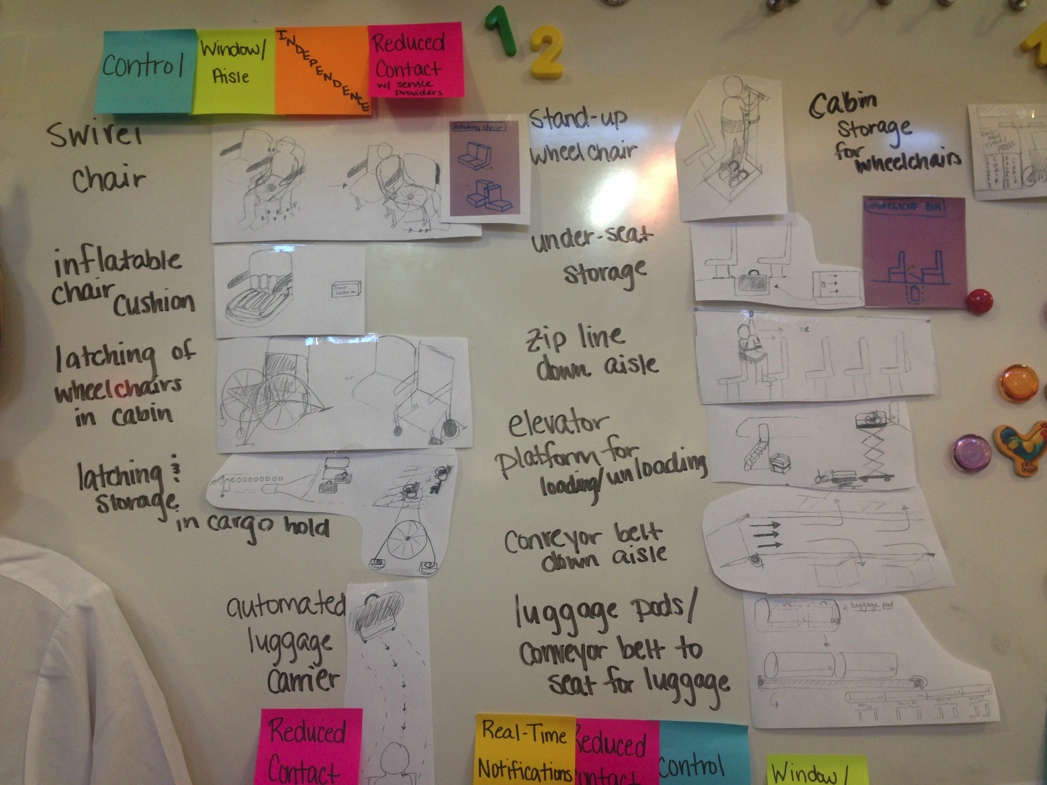 Control
Window/
Aisle
INDEPENDENCE
Reduced
Contact
w/ service
Providers
1 2
Swivel
Chair
inflatable
chair Cushion
latching of
wheelchairs
in cabin
latching &
storage
in cargo hold
automated
luggage
carrier
stand-up
wheelchair
under-seat
storage
zip line
down aisle
elevator
platform for
loading/unloading
conveyor belt
down aisle
luggage pods/
conveyor belt to
seat for luggage
luggage pod
Cabin
storage
for
wheelchairs
Reduced
Contact
Real-Time
Notifications
Reduced
Contact
Control
Window/